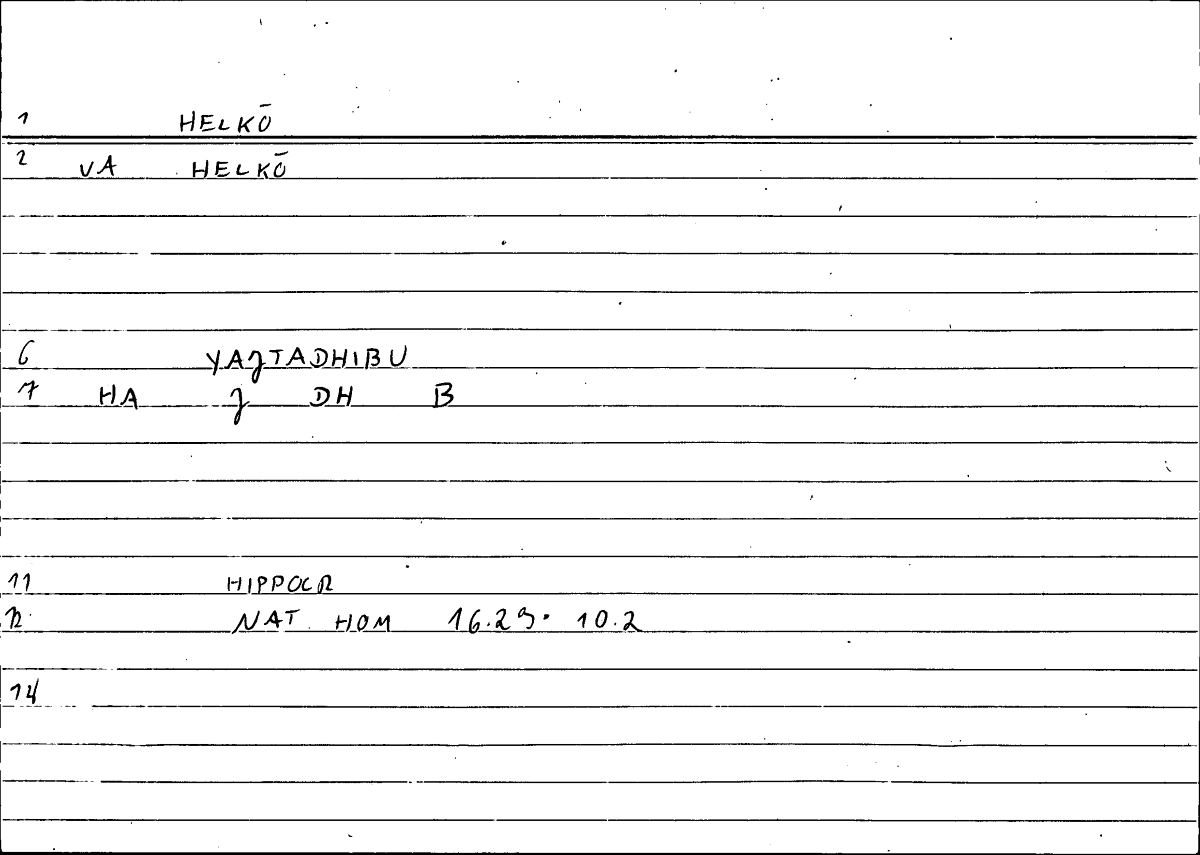 1 HELKŌ
2 VA HELKŌ
6 YAJTADHIBU
7 HA J DH B
11 HIPPOCR
12 NAT HOM 16.29. 10.2
14